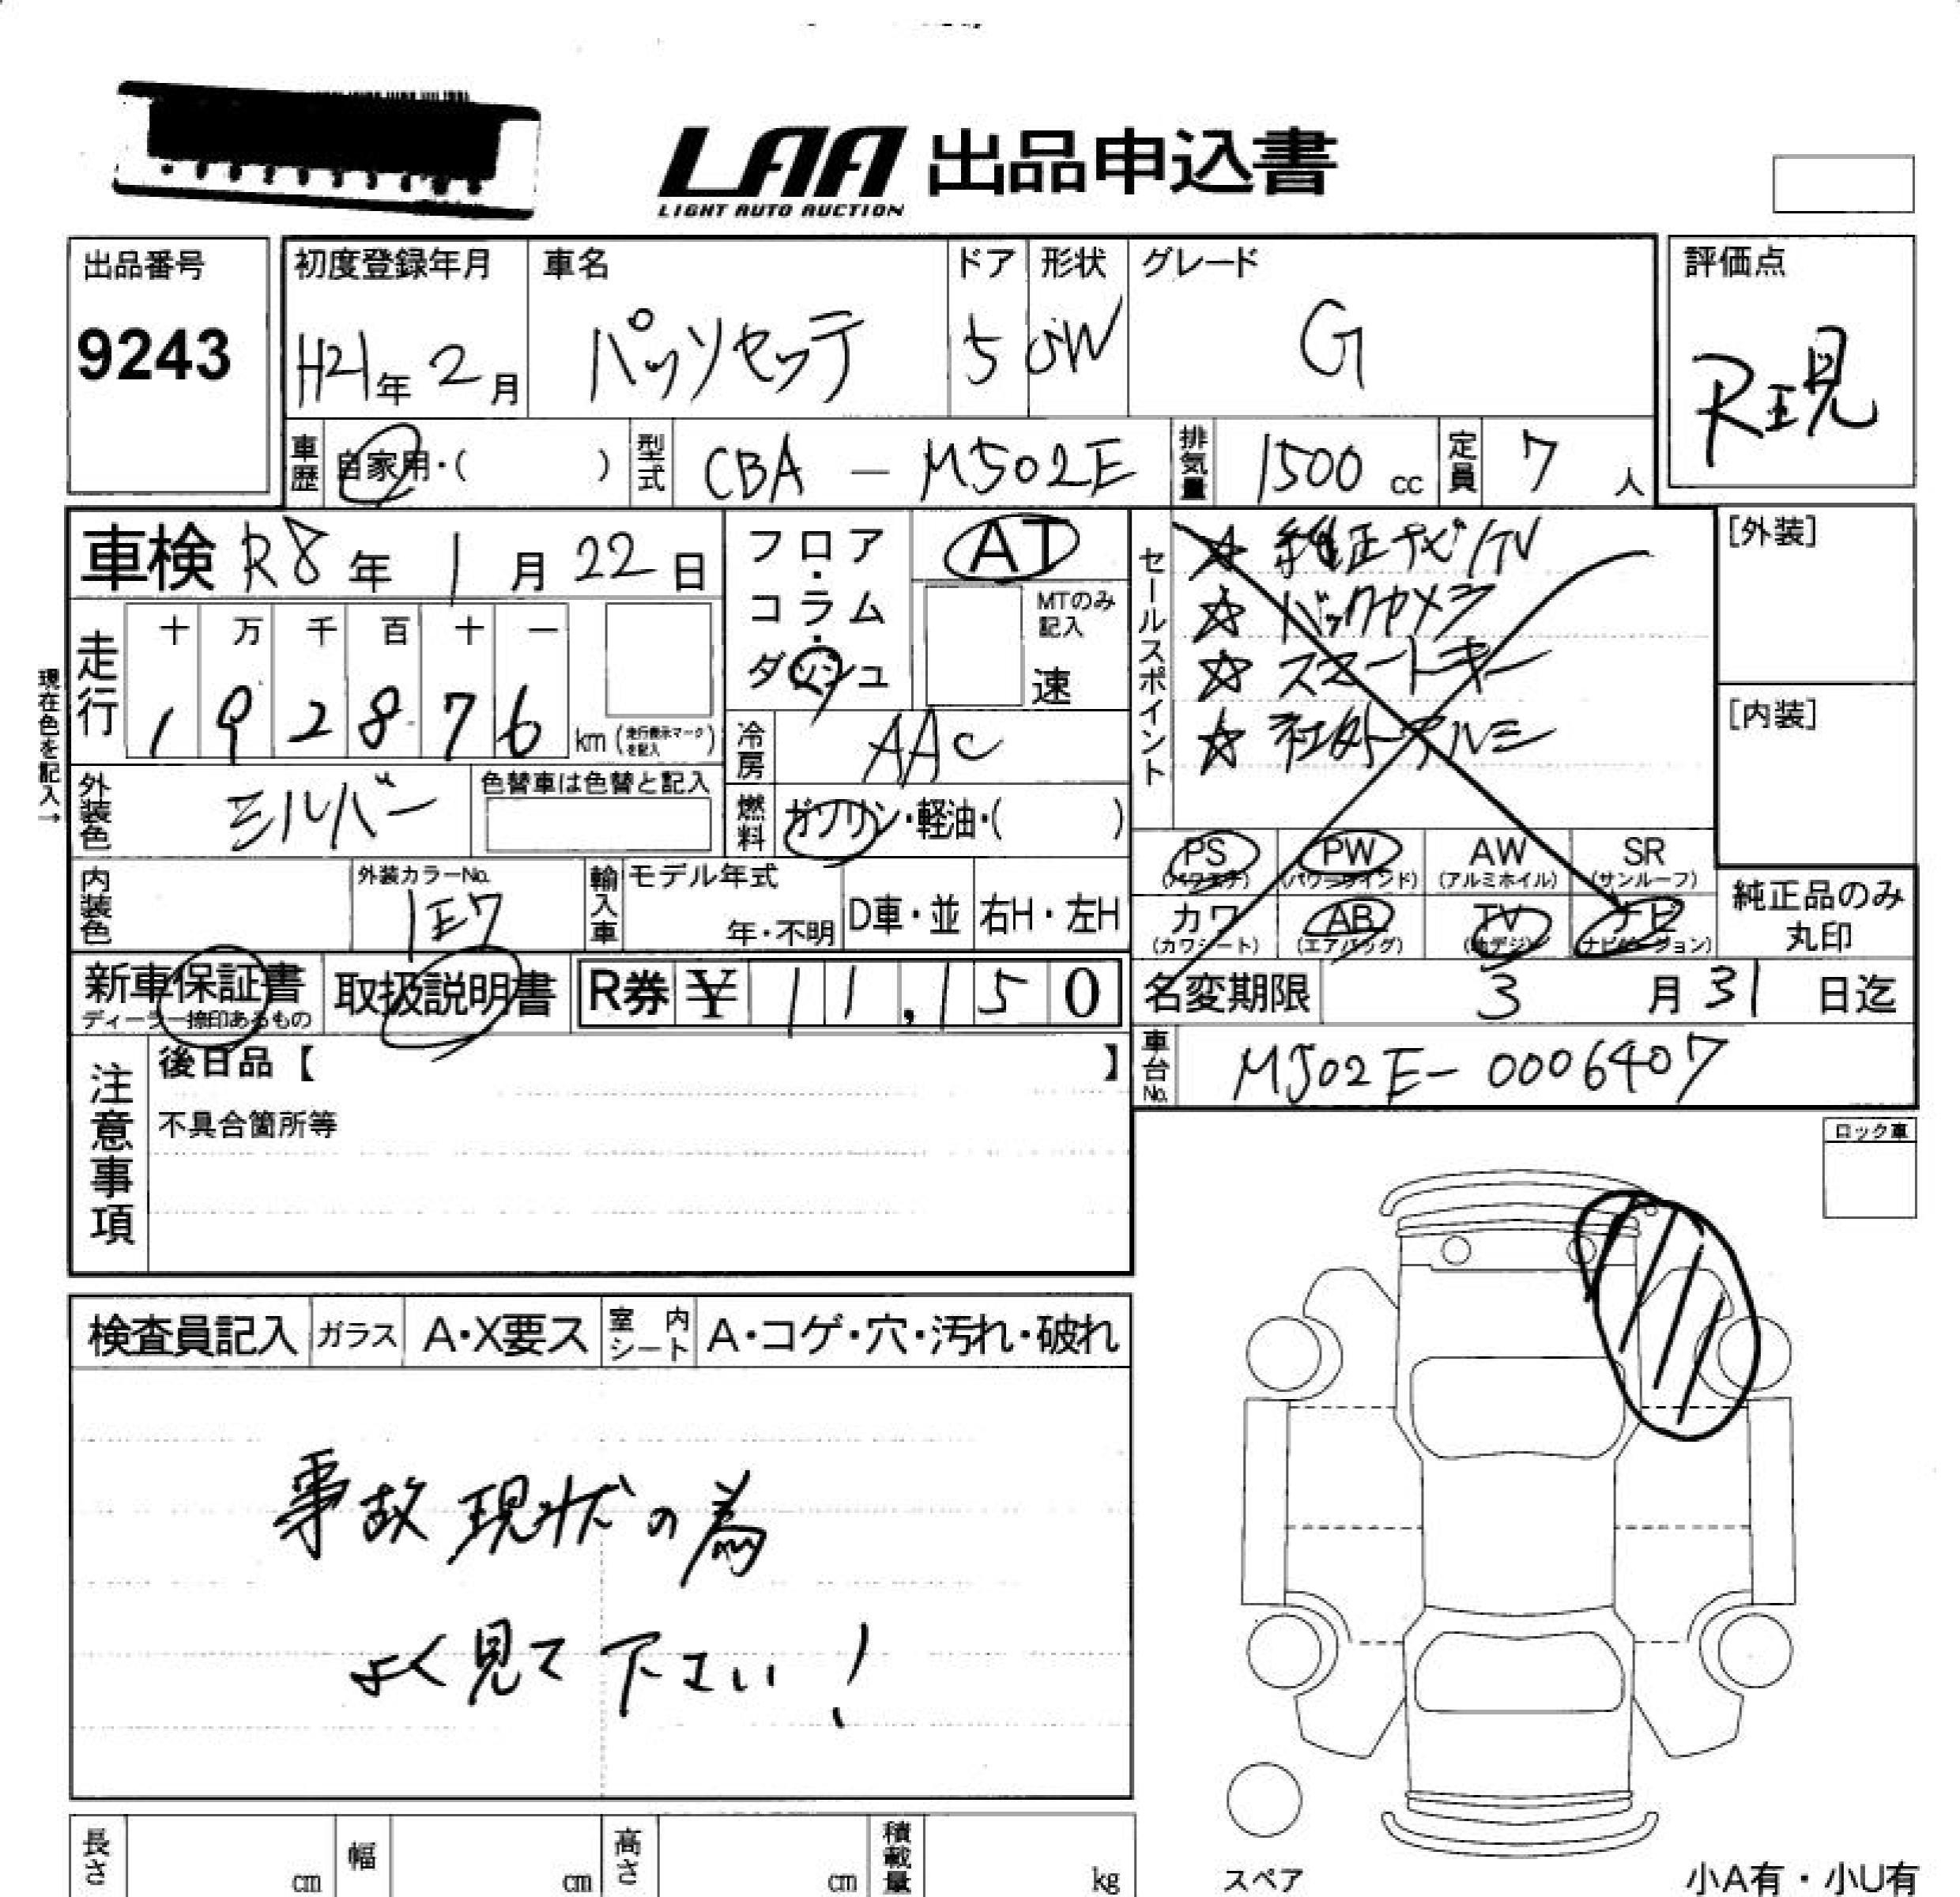 LAA 出品申込書
LIGHT AUTO AUCTION
出品番号
9243
初度登録年月
H21年 2月
車名
パッソセッテ
ドア
5
形状
5W
グレード
G
評価点
R現
車歴 自家用・( )
型式 CBA - M502E
排気量 1500 cc
定員 7 人
車検 R8年 1月 22日
フロア・コラム・ダッシュ
AT
MTのみ記入
速
セールスポイント
☆ 純正ナビ/TV
☆ バックカメラ
☆ スマートキー
☆ 社外アルミ
[外装]
[内装]
現在色を記入→
走行
十 万 千 百 十 一
1 9 2 8 7 6 km (走行表示マークを記入)
冷房 AAC
外装色 シルバー
色替車は色替と記入
燃料 ガソリン・軽油・( )
内装色
外装カラーNo.
1E7
輸入車
モデル年式
年・不明
D車・並
右H・左H
PS PW AW SR
(パワステ) (パワーウインド) (アルミホイル) (サンルーフ)
カワ AB TV ナビ
(カワシート) (エアバッグ) (地デジ) (ナビゲーション)
純正品のみ
丸印
新車保証書
ディーラー捺印あるもの
取扱説明書
R券 ¥ 11,150
名変期限 3月 31日迄
車台No. M502E-0006407
注意事項
後日品【 】
不具合箇所等
ロック車
検査員記入
ガラス A・X要ス
室内シート A・コゲ・穴・汚れ・破れ
事故現状の為
よく見て下さい!
長さ cm
幅 cm
高さ cm
積載量 kg
スペア
小A有・小U有